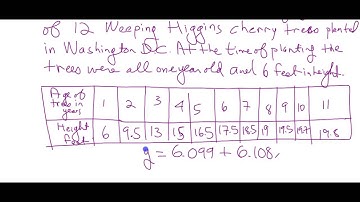 of 12 Weeping Higgins cherry trees planted
in Washington D.C. At the time of planting the
trees were all one year old and 6 feet in height.
Age of trees in years 1 2 3 4 5 6 7 8 9 10 11
Height Feet 6 9.5 13 15 16.5 17.5 18.5 19 19.5 19.7 19.8
y = 6.099 + 6.108